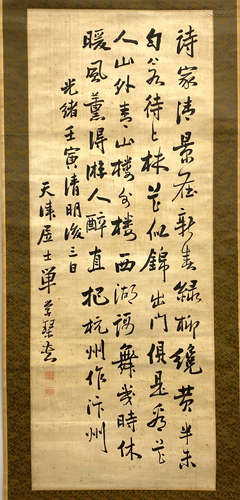 詩家清景在新春緑柳纔黄半未
勻若待上林花似錦出門俱是看花
人山外青山樓外樓西湖歌舞幾時休
暖風薰得游人醉直把杭州作汴州
光緒壬寅清明後三日
天津居士單